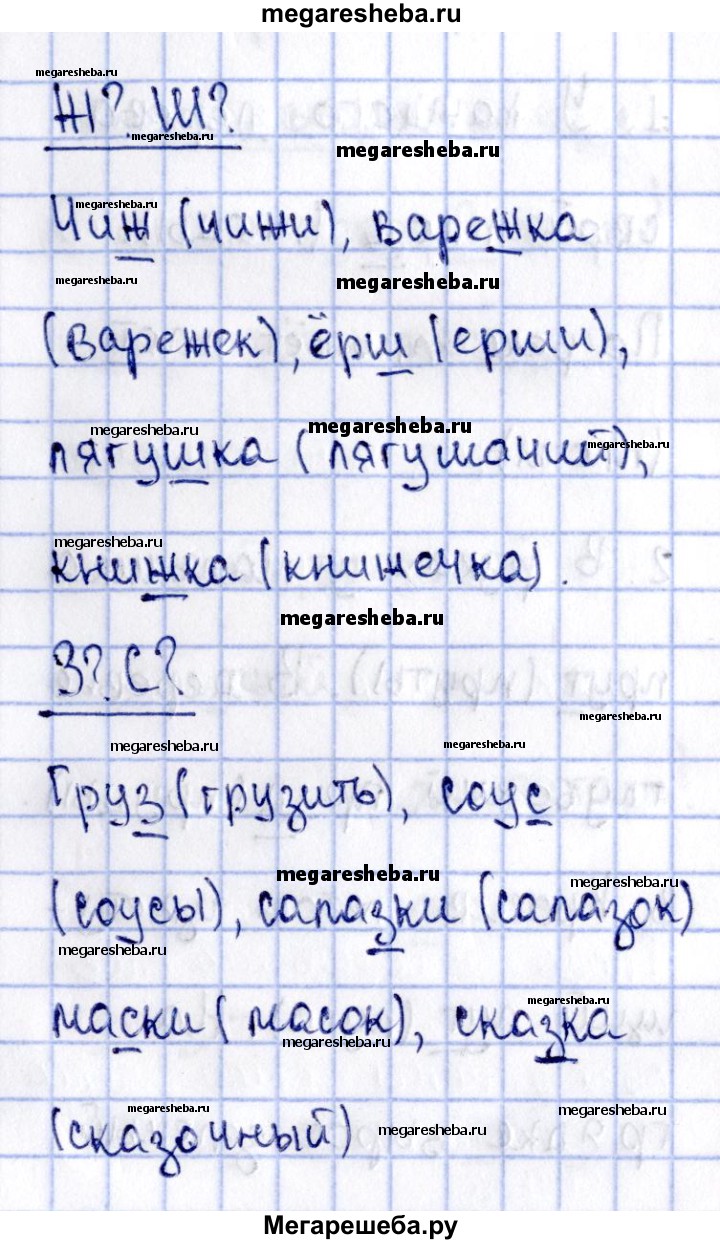 megaresheba.ru
megaresheba.ru
Ж? Ш?
megaresheba.ru
megaresheba.ru
megaresheba.ru
Чиж (чижи), варежка
megaresheba.ru
megaresheba.ru
(варежек), ёрш (ерши),
megaresheba.ru
megaresheba.ru
megaresheba.ru
лягушка (лягушачий),
megaresheba.ru
книжка (книжечка).
megaresheba.ru
З? С?
megaresheba.ru
megaresheba.ru
megaresheba.ru
Груз (грузить), соус
megaresheba.ru
megaresheba.ru
(соусы), салазки (салазок)
megaresheba.ru
megaresheba.ru
маски (масок), сказка
megaresheba.ru
megaresheba.ru
megaresheba.ru
(сказочный)
megaresheba.ru
Мегарешеба.ру